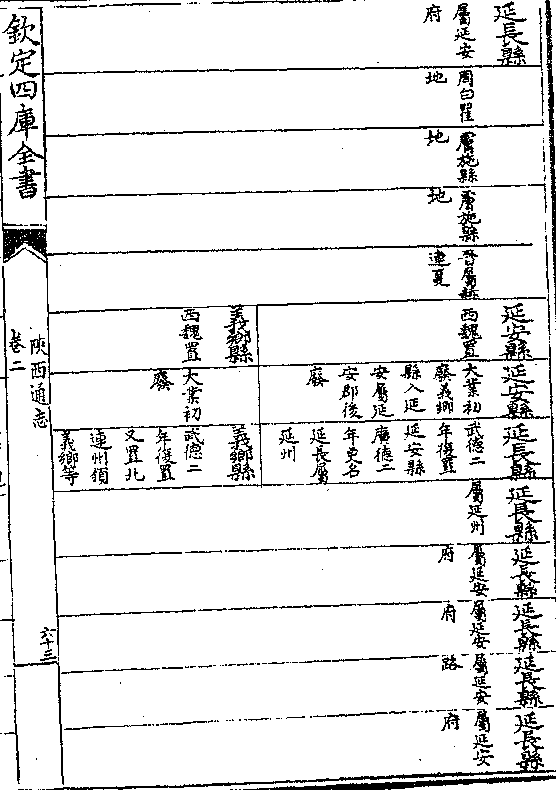 延長縣
屬延安
府
周白翟
地
膚施縣
地
膚施縣
地
晉屬赫
連夏
延安縣
西魏置
義鄉縣
西魏置
延安縣
大業初
廢義鄉
縣入延
安屬延
安郡後
廢
大業初
廢
延長縣
武德二
年復置
延安縣
廣德二
年更名
延長屬
延州
義鄉縣
武德二
年復置
又置北
連州領
義鄉等
延長縣
屬延州
延長縣
屬延安
府
延長縣
屬延安
府
延長縣
屬延安
路
延長縣
屬延安
府
欽定四庫全書
陝西通志
卷二
六十三